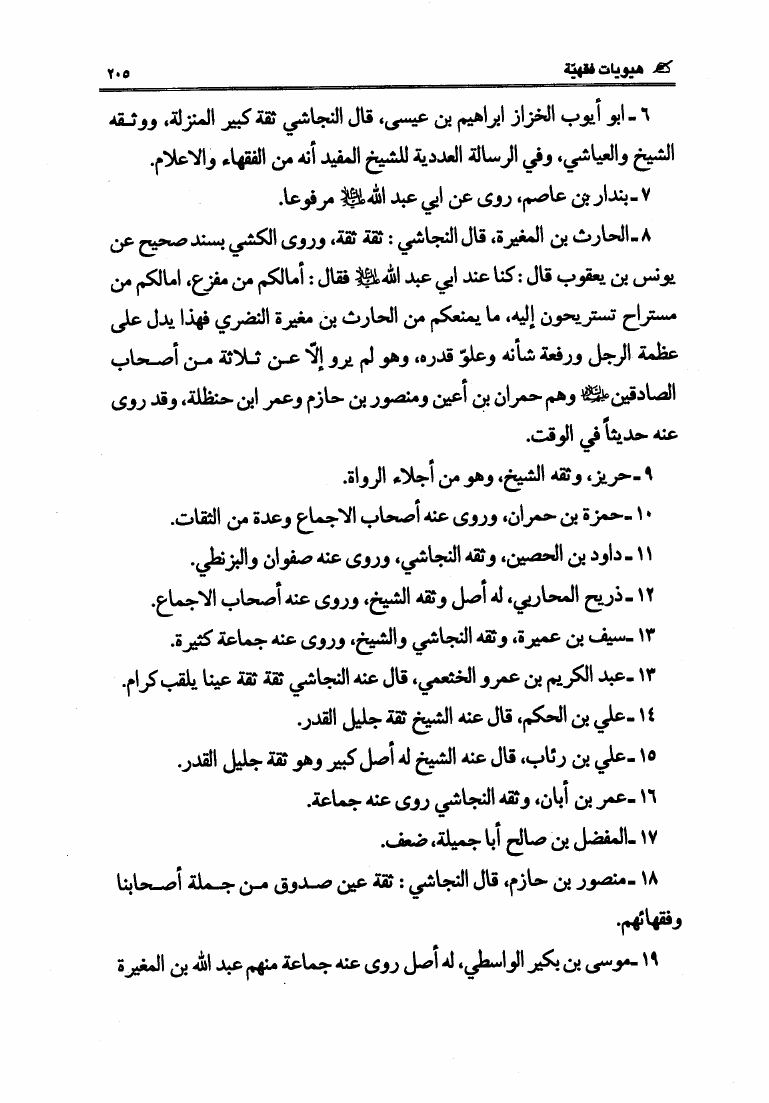 هيويات فقهيّة ٢٠٥
٦ ـ ابو أيوب الخزاز ابراهيم بن عيسى، قال النجاشي ثقة كبير المنزلة، ووثقه
الشيخ والعياشي، وفي الرسالة العددية للشيخ المفيد أنه من الفقهاء والاعلام.
٧ ـ بندار بن عاصم، روى عن ابي عبد الله عليه السلام مرفوعا.
٨ ـ الحارث بن المغيرة، قال النجاشي : ثقة ثقة، وروى الكشي بسند صحيح عن
يونس بن يعقوب قال : كنا عند ابي عبد الله عليه السلام فقال : أمالكم من مفزع، امالكم من
مستراح تستريحون إليه، ما يمنعكم من الحارث بن مغيرة النضري فهذا يدل على
عظمة الرجل ورفعة شأنه وعلوّ قدره، وهو لم يرو إلّا عن ثلاثة من أصحاب
الصادقين عليهما السلام وهم حمران بن أعين ومنصور بن حازم وعمر ابن حنظلة، وقد روى
عنه حديثاً في الوقت.
٩ ـ حريز، وثقه الشيخ، وهو من أجلاء الرواة.
١٠ ـ حمزة بن حمران، وروى عنه أصحاب الاجماع وعدة من الثقات.
١١ ـ داود بن الحصين، وثقه النجاشي، وروى عنه صفوان والبزنطي.
١٢ ـ ذريح المحاربي، له أصل وثقه الشيخ، وروى عنه أصحاب الاجماع.
١٣ ـ سيف بن عميرة، وثقه النجاشي والشيخ، وروى عنه جماعة كثيرة.
١٣ ـ عبد الكريم بن عمرو الخثعمي، قال عنه النجاشي ثقة ثقة عينا يلقب كرام.
١٤ ـ علي بن الحكم، قال عنه الشيخ ثقة جليل القدر.
١٥ ـ علي بن رئاب، قال عنه الشيخ له أصل كبير وهو ثقة جليل القدر.
١٦ ـ عمر بن أبان، وثقه النجاشي روى عنه جماعة.
١٧ ـ المفضل بن صالح أبا جميلة، ضعف.
١٨ ـ منصور بن حازم، قال النجاشي : ثقة عين صدوق من جملة أصحابنا
وفقهائهم.
١٩ ـ موسى بن بكير الواسطي، له أصل روى عنه جماعة منهم عبد الله بن المغيرة